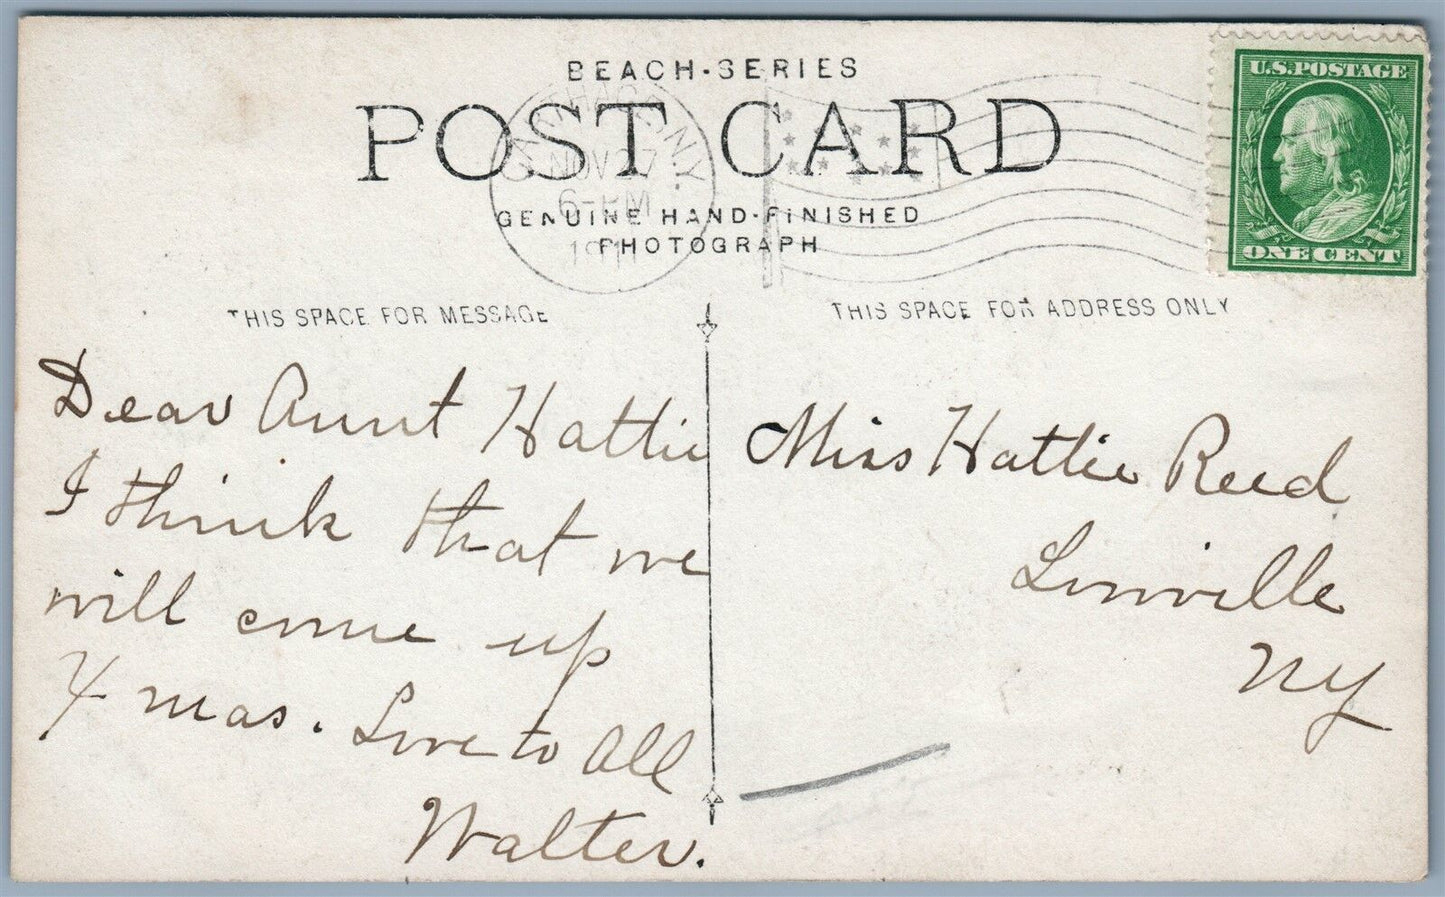 BEACH-SERIES
POST CARD
GENUINE HAND-FINISHED
PHOTOGRAPH
CARTHAGE, N.Y.
NOV 27
6-PM
1911
U.S. POSTAGE
ONE CENT
THIS SPACE FOR MESSAGE
THIS SPACE FOR ADDRESS ONLY
Dear Aunt Hattie
I think that we
will come up
Xmas. Love to All
Walter.
Miss Hattie Reed
Linville
NY